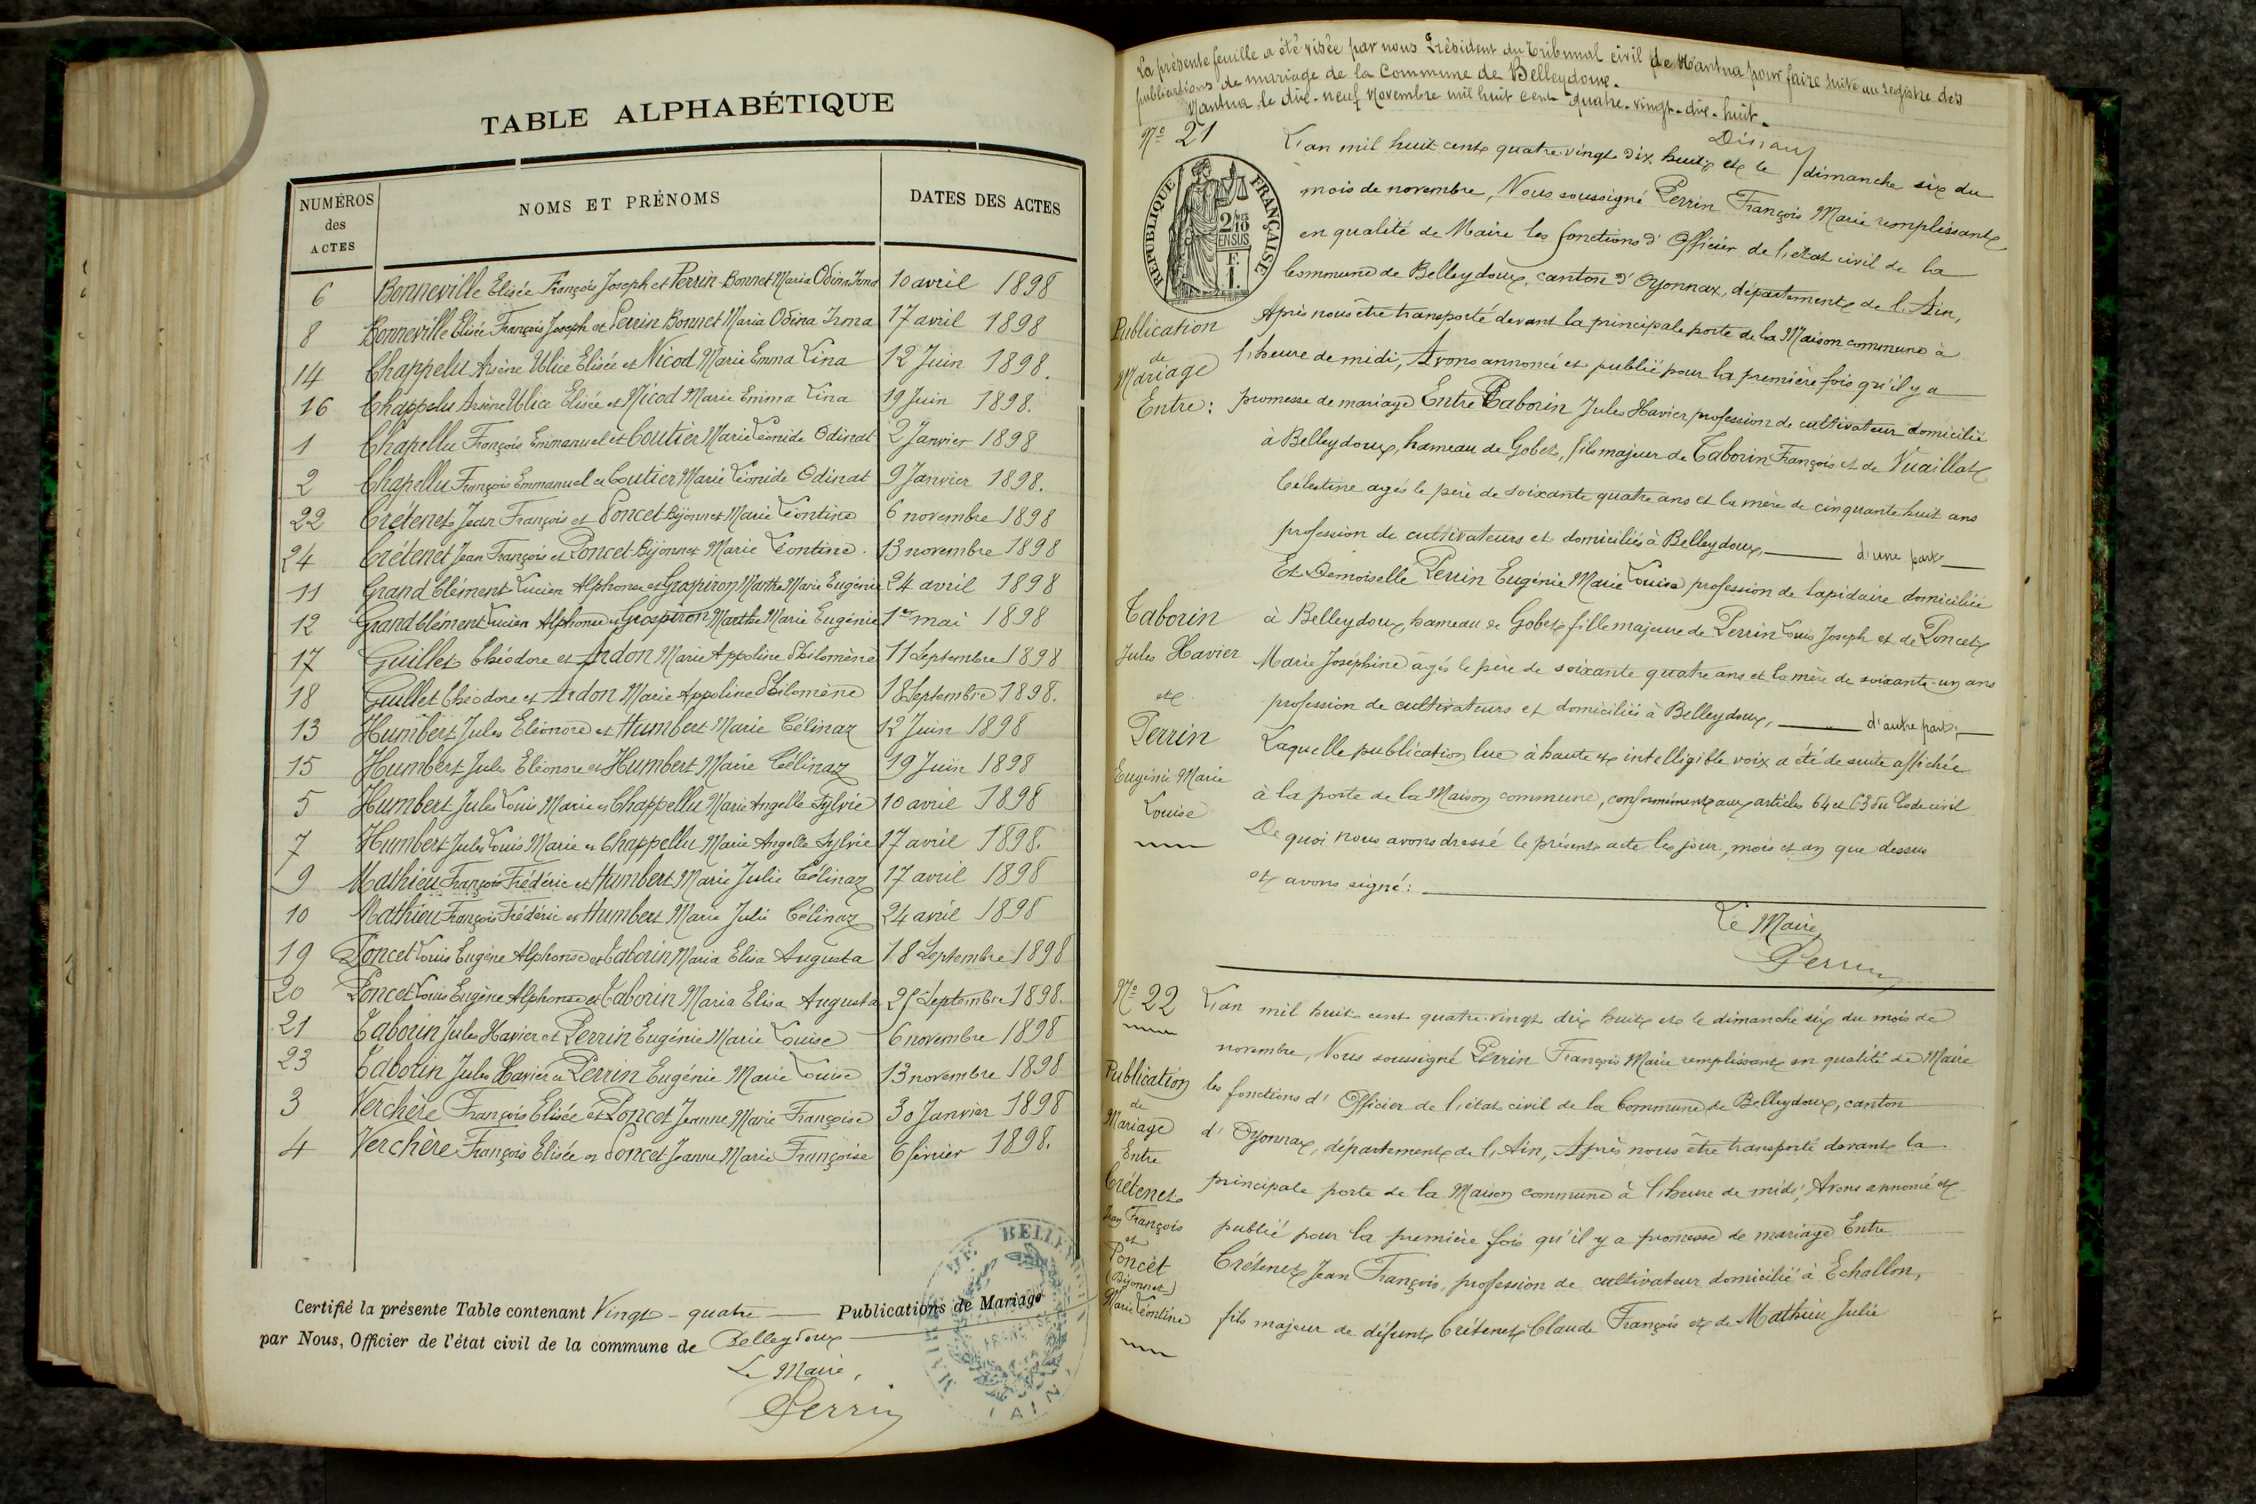 TABLE ALPHABÉTIQUE
NUMÉROS des ACTES
NOMS ET PRÉNOMS
DATES DES ACTES
6 Bonneville Elisée François Joseph et Perrin-Bonnet Maria Odina Irma 10 avril 1898
8 Bonneville Elisée François Joseph et Perrin Bonnet Maria Odina Irma 17 avril 1898
14 Chappelu Arsène Ulice Elisée et Nicod Marie Emma Lina 12 Juin 1898.
16 Chappelu Arsène Ulice Elisée et Nicod Marie Emma Lina 19 Juin 1898.
1 Chapellu François Emmanuel et Coutier Marie Léonide Odinat 2 Janvier 1898
2 Chapellu François Emmanuel et Coutier Marie Léonide Odinat 9 Janvier 1898.
22 Crétenet Jean François et Poncet Bijonnet Marie Léontine 6 novembre 1898
24 Crétenet Jean François et Poncet-Bijonnet Marie Léontine. 13 novembre 1898
11 Grand Clément Lucien Alphonse et Grospiron Marthe Marie Eugénie 24 avril 1898
12 Grandclément Lucien Alphonse et Grospiron Marthe Marie Eugénie 1er mai 1898
17 Guillet Théodore et Ardon Marie Appoline Philomène 11 Septembre 1898
18 Guillet Théodore et Ardon Marie Appoline Philomène 18 Septembre 1898.
13 Humbert Jules Eléonore et Humbert Marie Célinaz 12 Juin 1898
15 Humbert Jules Eléonore et Humbert Marie Célinaz 19 Juin 1898
5 Humbert Jules Louis Marie et Chappellu Marie Angelle Sylvie 10 avril 1898
7 Humbert Jules Louis Marie et Chappellu Marie Angelle Sylvie 17 avril 1898.
9 Mathieu François Frédéric et Humbert Marie Julie Célinaz 17 avril 1898
10 Mathieu François Frédéric et Humbert Marie Julie Célinaz 24 avril 1898
19 Poncet Louis Eugène Alphonse et Taborin Maria Elisa Augusta 18 Septembre 1898
20 Poncet Louis Eugène Alphonse et Taborin Maria Elisa Augusta 25 Septembre 1898.
21 Taborin Jules Xavier et Perrin Eugénie Marie Louise 6 novembre 1898
23 Taborin Jules Xavier et Perrin Eugénie Marie Louise 13 novembre 1898
3 Verchère François Elisée et Poncet Jeanne Marie Françoise 30 Janvier 1898
4 Verchère François Elisée et Poncet Jeanne Marie Françoise 6 février 1898.
Certifié la présente Table contenant Vingt-quatre Publications de Mariage
par Nous, Officier de l'état civil de la commune de Belleydoux
Le Maire,
Perrin
MAIRIE DE BELLEYDOUX
(AIN)
La présente feuille a été visée par nous Président du Tribunal civil de Nantua pour faire suite au registre des
publications de mariage de la Commune de Belleydoux.
Nantua le dix-neuf Novembre mil huit cent quatre-vingt-dix-huit.
No 21
RÉPUBLIQUE FRANÇAISE
2/10 EN SUS
F. 1.
L'an mil huit cent quatre-vingt dix huit et le dimanche six du
mois de novembre, Nous soussigné Perrin François Marie remplissant
en qualité de Maire les fonctions d'Officier de l'état civil de la
Commune de Belleydoux, canton d'Oyonnax, département de l'Ain,
Publication de Mariage Entre:
Après nous être transporté devant la principale porte de la Maison commune à
l'heure de midi, Avons annoncé et publié pour la première fois qu'il y a
promesse de mariage Entre Taborin Jules Xavier profession de cultivateur domicilié
à Belleydoux, hameau de Gobet, fils majeur de Taborin François et de Vuaillat
Célestine agés le père de soixante quatre ans et la mère de cinquante huit ans
profession de cultivateurs et domiciliés à Belleydoux, d'une part
Et Demoiselle Perrin Eugénie Marie Louise profession de lapidaire domiciliée
Taborin Jules Xavier et Perrin Eugénie Marie Louise
à Belleydoux, hameau de Gobet fille majeure de Perrin Louis Joseph et de Poncet
Marie Joséphine âgés le père de soixante quatre ans et la mère de soixante-un ans
profession de cultivateurs et domiciliés à Belleydoux, d'autre part;
Laquelle publication lue à haute et intelligible voix a été de suite affichée
à la porte de la Maison commune, conformément aux articles 64 et 63 du Code civil
De quoi nous avons dressé le présent acte les jour, mois et an que dessus
et avons signé:
Le Maire,
Perrin
No 22
L'an mil huit cent quatre-vingt dix huit et le dimanche six du mois de
novembre, Nous soussigné Perrin François Marie remplissant en qualité de Maire
Publication de Mariage Entre Crétenet Jean François et Poncet (Bijonnet) Marie Léontine
les fonctions d'Officier de l'état civil de la Commune de Belleydoux, canton
d'Oyonnax, département de l'Ain, Après nous être transporté devant la
principale porte de la Maison commune à l'heure de midi, Avons annoncé et
publié pour la première fois qu'il y a promesse de mariage Entre
Crétenet Jean François, profession de cultivateur domicilié à Echallon,
fils majeur de défunt Crétenet Claude François et de Mathieu Julie